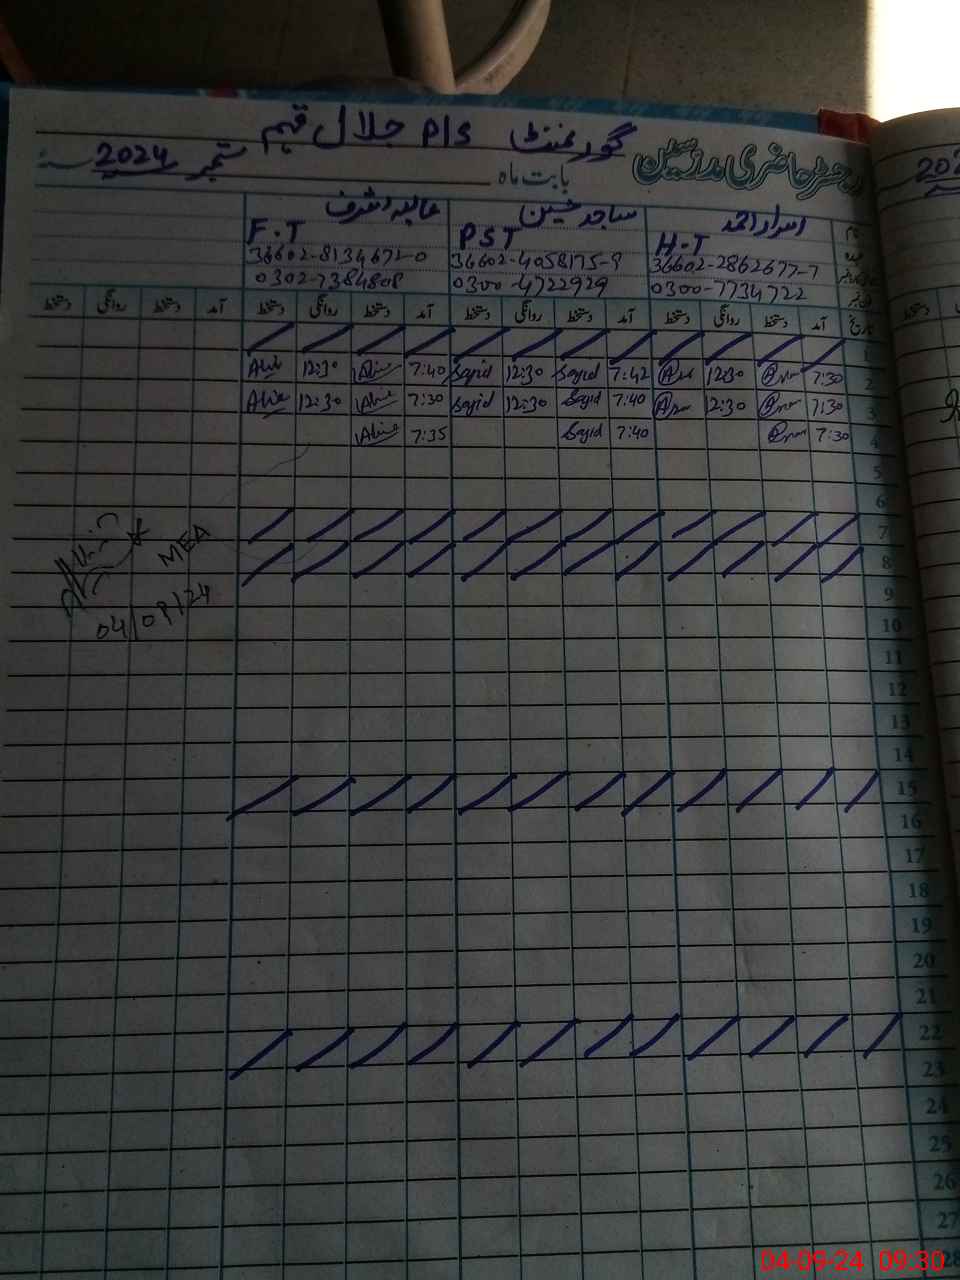 گورنمنٹ P/S جلال فہیم
رجسٹر حاضری مدرسین
بابت ماہ ستمبر 2024 سنہ
اسرار احمد ساجد حسین عالیہ اشرف
H.T PST F.T
36602-2862677-7 36602-4058175-9 36602-8134672-0
0300-7734722 0300-4722929 0302-7384808
تاریخ آمد دستخط روانگی دستخط آمد دستخط روانگی دستخط آمد دستخط روانگی دستخط آمد دستخط روانگی دستخط
1
2 7:30 12:30 7:42 Sajid 12:30 Sajid 7:40 12:30
3 7:30 12:30 7:40 Sajid 12:30 Sajid 7:30 12:30
4 7:30 7:40 Sajid 7:35
5
6
7
8
9
10
11
12
13
14
15
16
17
18
19
20
21
22
23
24
25
26
27
28
MEA
04/09/24
04-09-24 09:30